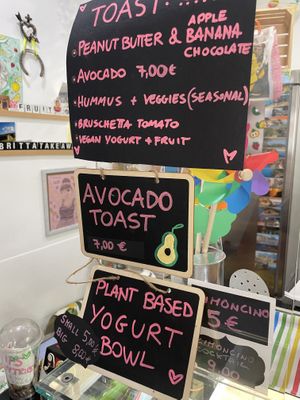 TOAST:
PEANUT BUTTER & APPLE
BANANA
CHOCOLATE
AVOCADO 7,00€
HUMMUS + VEGGIES (SEASONAL)
BRUSCHETTA TOMATO
VEGAN YOGURT + FRUIT
FRUIT
BRITTATAKEAW
AVOCADO
TOAST
7,00 €
PLANT BASED
YOGURT
BOWL
SMALL 5,00
BIG 8,00
IMONCINO
5€
IMONCINO
COCKTAIL
9,00